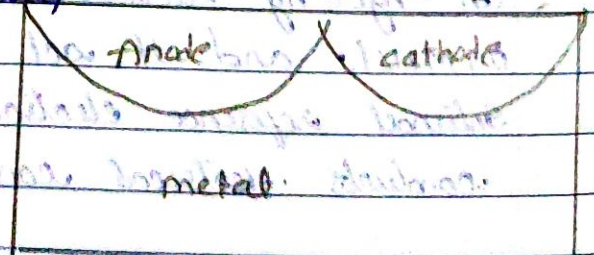 Anode cathode
metal.